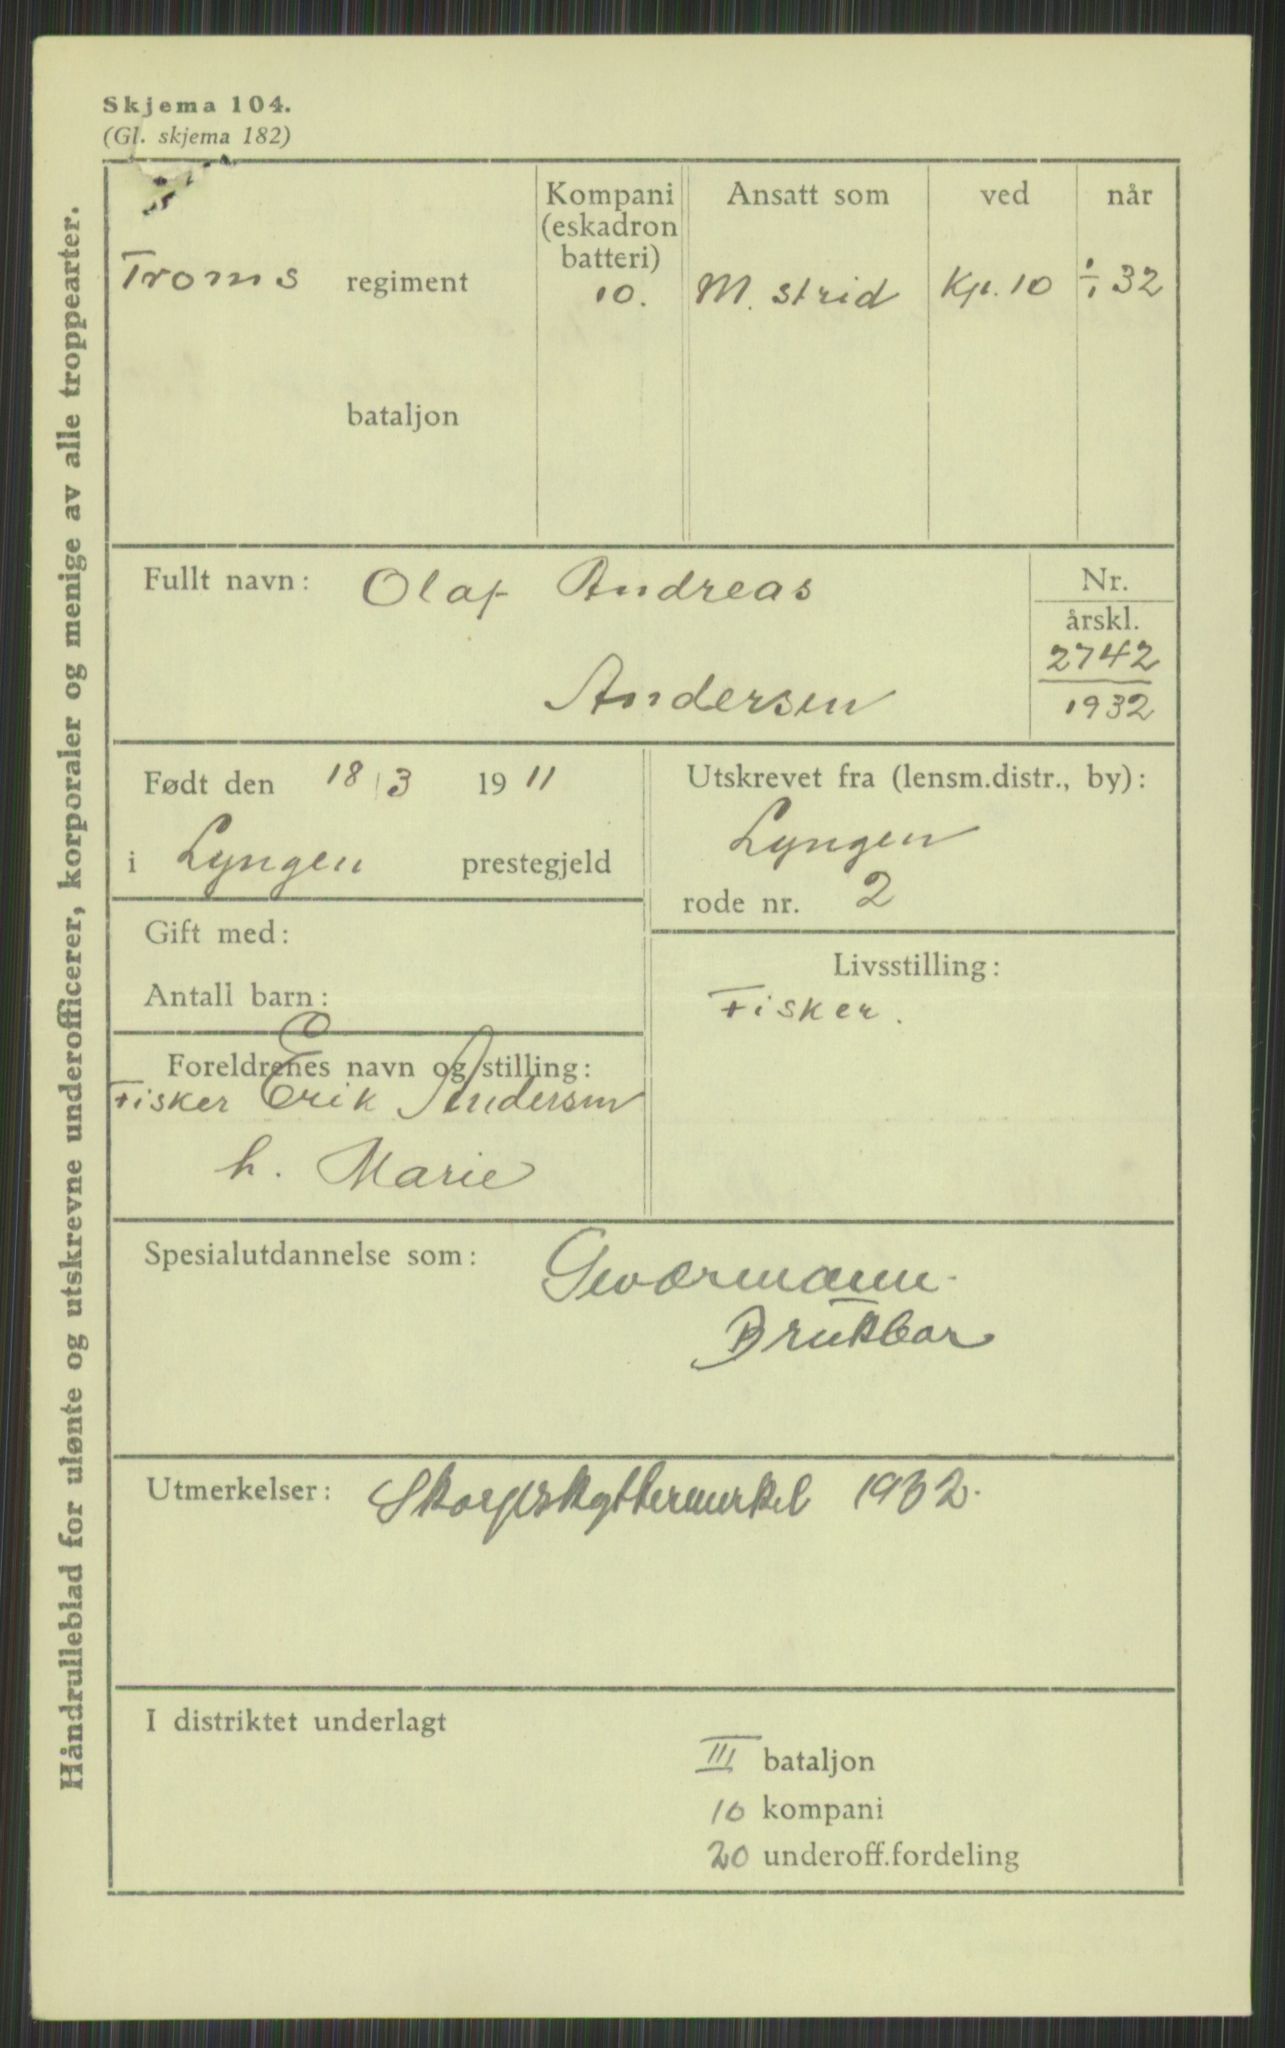 Skjema 104.
(Gl. skjema 182)
Håndrulleblad for ulønte og utskrevne underofficerer, korporaler og menige av alle troppearter.
Kompani (eskadron batteri) Ansatt som ved når
Troms regiment 10. M. strid Kp. 10 1/1 32
bataljon
Fullt navn: Olaf Andreas
Andersen
Nr.
årskl.
2742
1932
Født den 18/3 1911
i Lyngen prestegjeld
Utskrevet fra (lensm.distr., by):
Lyngen
rode nr. 2
Gift med:
Antall barn:
Livsstilling:
Fisker.
Foreldrenes navn og stilling:
Fisker Erik Andersen
h. Marie
Spesialutdannelse som: Geværmann.
Brukbar
Utmerkelser: Skarpskyttermerket 1932.
I distriktet underlagt
III bataljon
10 kompani
20 underoff.fordeling